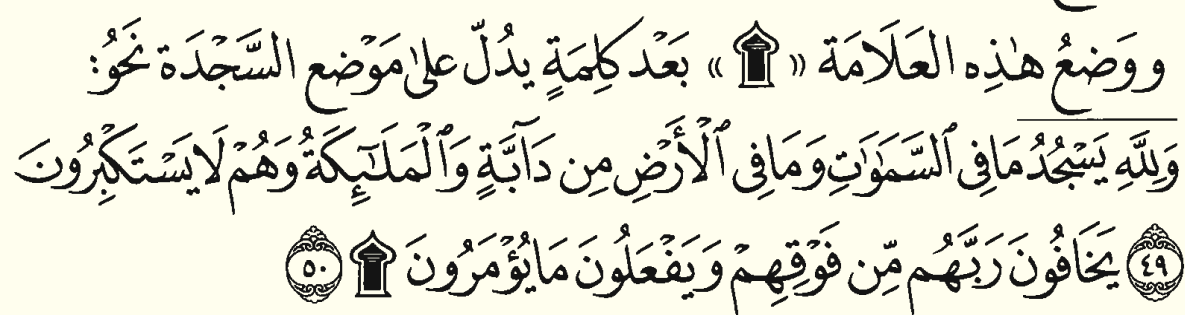 ووَضعُ هٰذِه العَلَامَة «۩» بَعْد كلِمَةٍ يدُلّ علىٰ مَوْضِع السَّجْدَة نَحْوُ:
وَلِلَّهِ يَسْجُدُ مَا فِى ٱلسَّمَٰوَٰتِ وَمَا فِى ٱلْأَرْضِ مِن دَآبَّةٍ وَٱلْمَلَٰٓئِكَةُ وَهُمْ لَا يَسْتَكْبِرُونَ
٤٩ يَخَافُونَ رَبَّهُم مِّن فَوْقِهِمْ وَيَفْعَلُونَ مَا يُؤْمَرُونَ ۩ ٥٠